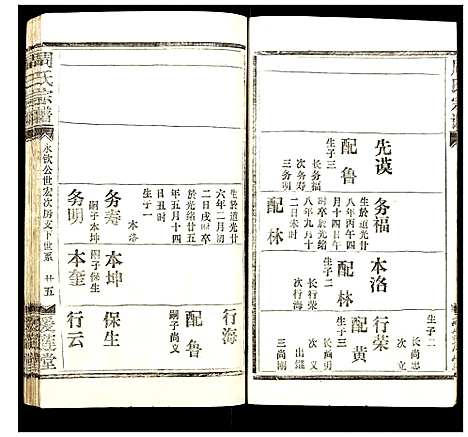 周氏宗譜
先謨
配魯
生子三
長务福
次务寿
三务明
务福
生於道光廿
八年丙午四
月十四日午
时卒於光緒
八年九月十
二日未时
配林
本洛
配林
生子二
長行榮
次行海
行榮
配黄
生子三
長尚勇
次出繼
三尚剛
生子二
長尚忠
次立
生於道光廿
六年二月初
二日戌时卒
於光緒廿五
年五月十四
生子一
本洛
务寿
嗣子本坤
务明
本坤
嗣子保生
本奎
行海
配魯
嗣子尚义
保生
行云
周氏宗譜
永钦公世宏次房文下世系
廿五
愛蓮堂